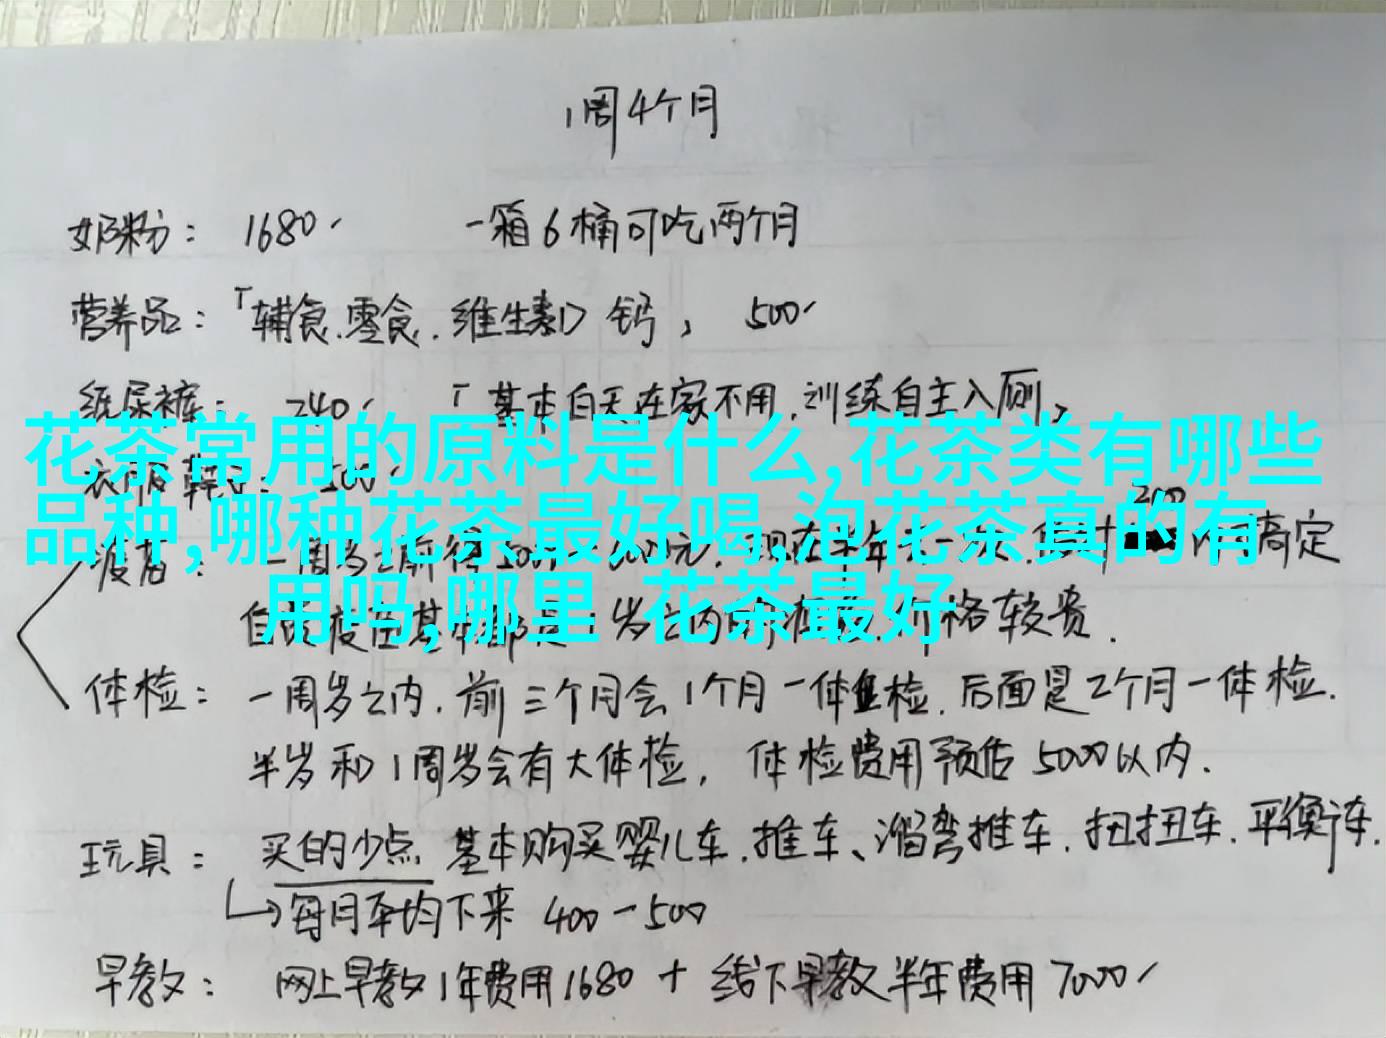 1周4个月
奶粉： 1680 一箱6桶可吃两个月
营养品：「辅食.零食.维生素D 钙， 500
纸尿裤： 240 「基本白天在家不用.训练自主入厕，
花茶常用的原料是什么,花茶类有哪些
品种,哪种花茶最好喝,泡花茶真的有
用吗,哪里 花茶最好
衣服
疫苗： 一周岁之前 搞定
自费疫苗基本都是1岁之内 价格较贵.
体检： 一周岁之内.前三个月会1个月一体检.后面是2个月一体检.
半岁和1周岁会有大体检， 体检费用预估5000以内.
玩具： 买的少点 基本购买婴儿车.推车、溜弯推车.扭扭车.平衡车.
每月平均下来 400-500
早教： 网上早教1年费用1680 + 线下早教半年费用7000